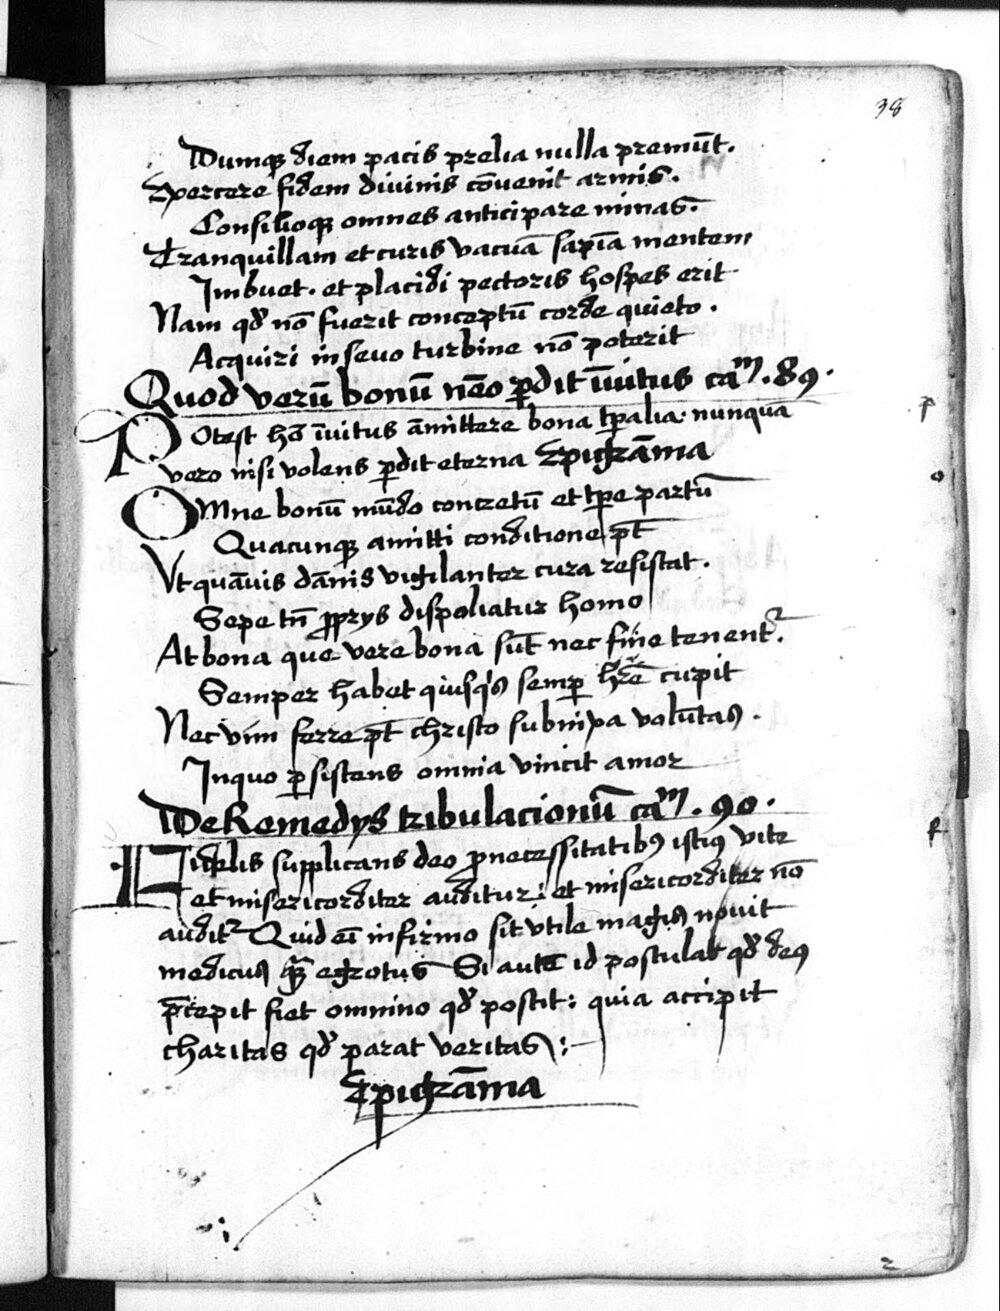 38
Dumq; diem pacis prelia nulla premūt.
Exercere fidem divinis cōvenit armis.
Consilioq; omnes anticipare minas.
Tranquillam et curis vacuā sapīa mentem
Imbuet. et placidi pectoris hospes erit
Nam qd' nō fuerit conceptū corde quieto.
Acquiri in sevo turbine nō poterit
Quod verū bonū nēo ꝑdit īvitus caᵐ. 89.
Potest hō īvitus āmittere bona tꝑalia. nunquā
vero nisi volens ꝑdit eterna Epigrāma
Omne bonū mūdo concretū et tꝑe partū
Quacunq; amitti conditione pt̄
Vt quāvis dānis vigilanter cura resistat.
Sepe tn̄ ꝓprys dispoliatur homo
At bona que vere bona sūt nec fine tenent᷑.
Semper habet quisq's semꝑ hr̄e cupit
Nec vim ferre pt̄ christo subnixa volūtas.
In quo ꝑsistens omnia vincit amor
De Remedys tribulacionū caᵐ. 90.
Fidelis supplicans deo ꝓ necessitatibꝰ istiꝰ vite
et misericorditer auditur: et misericorditer nō
audit᷑ Quid eī infirmo sit vtile magis novit
medicus qꝫ egrotus Si autē id postulat qd' deꝰ
p̄cepit fiet omnino qd' poscit: quia accipit
charitas qd' parat veritas:
Epigrāma
2